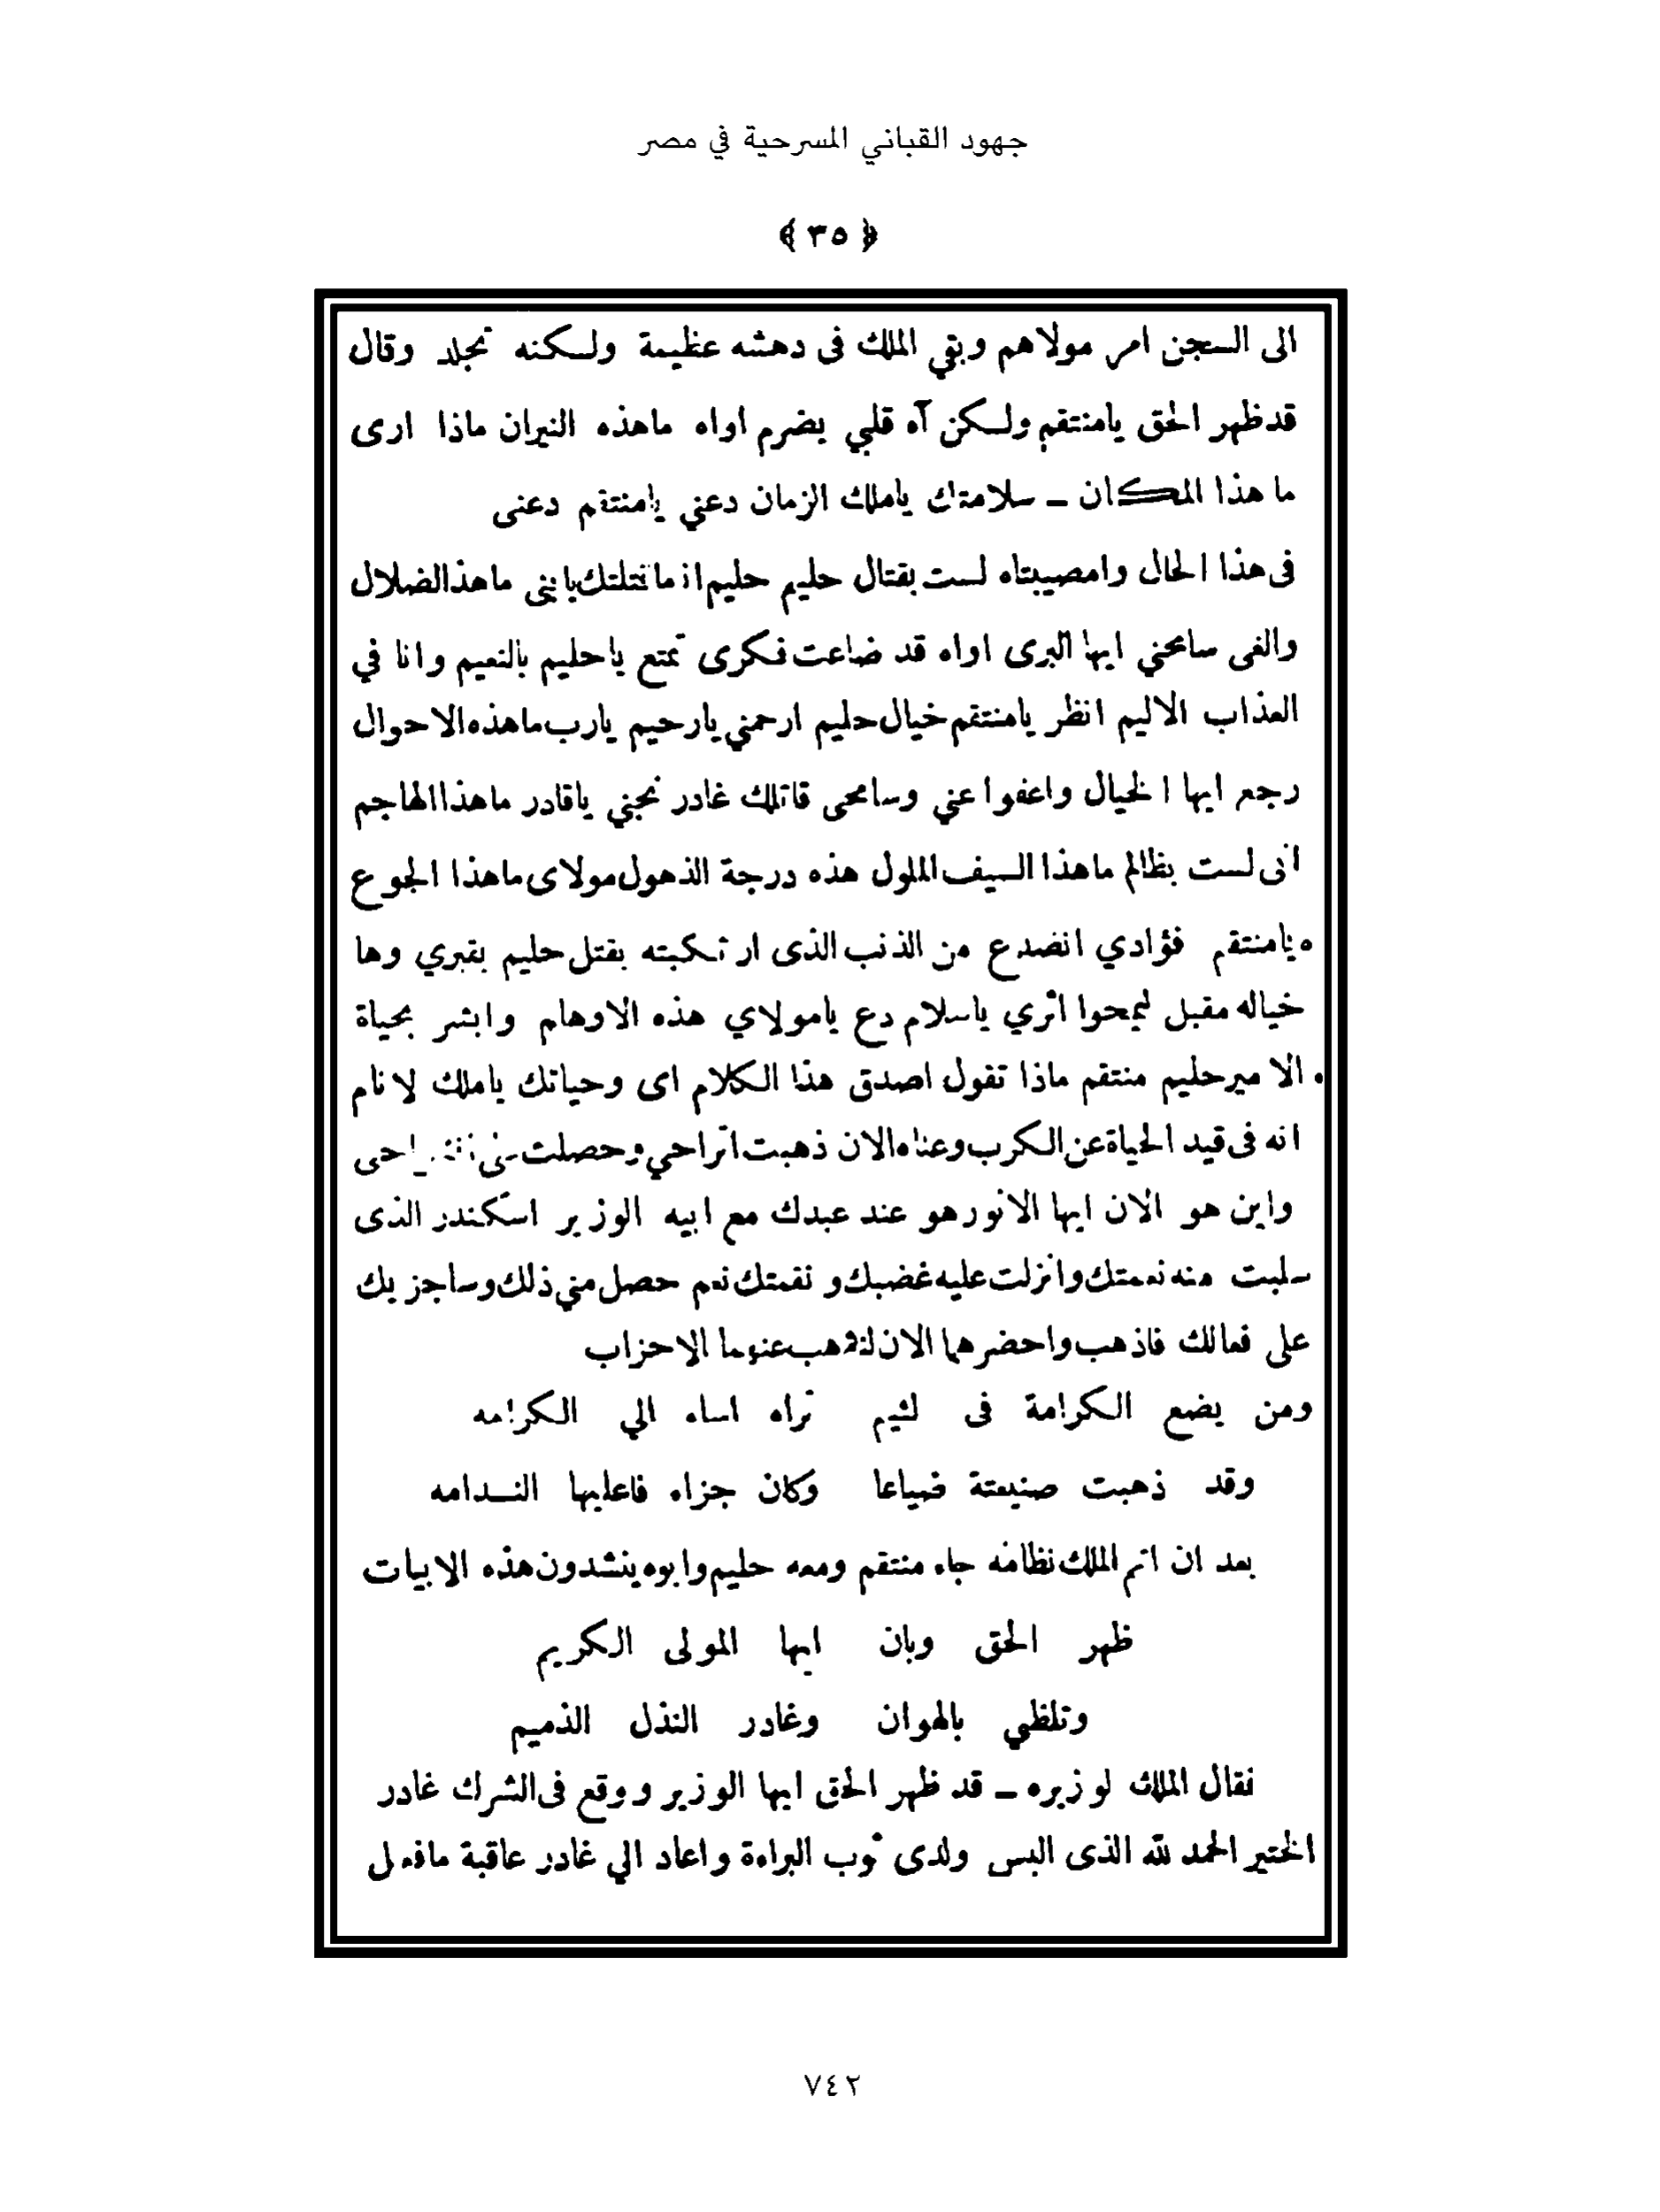 جهود القباني المسرحية في مصر
﴿ ٣٥ ﴾
الى السجن امر مولاهم وبقي الملك فى دهشه عظيمة ولكنه تجلد وقال
قد ظهر الحق يامنتقم ولكن آه قلبي يضرم اواه ماهذه النيران ماذا ارى
ما هذا المكان ــ سلامتك ياملك الزمان دعني يامنتقم دعنى
فى هذا الحال وامصيبتاه لست بقتال حليم حليم انا ماقتلتك يابنى ماهذا الضلال
والغى سامحني ايها البرى اواه قد ضاعت فكرى تمتع ياحليم بالنعيم وانا في
العذاب الاليم انظر يامنتقم خيال حليم ارحمني يارحيم يارب ماهذه الاحوال
رجع ايها الخيال واعفوا عني وسامحى قاتلك غادر نجني ياقادر ماهذا الهاجم
انى لست بظالم ماهذا السيف الملول هذه درجة الذهول مولاى ماهذا الجوع
ه يامنتقم فؤادي انضدع من الذنب الذى ارتكبته بقتل حليم بقبري وها
خياله مقبل ليمحوا اثري ياسلام دع يامولاي هذه الاوهام وابشر بحياة
الامير حليم منتقم ماذا تقول اصدق هذا الكلام اى وحياتك ياملك لانام
انه فى قيد الحياة عن الكرب وعناه الان ذهبت اتراحي وحصلت
واين هو الان ايها الانور هو عند عبدك مع ابيه الوزير اسكندر الذى
سلبت منه نعمتك وانزلت عليه غضبك و نقمتك نعم حصل مني ذلك وساجزيك
على فعالك فاذهب واحضرهما الان لتذهب عنهما الاحزاب
ومن يضع الكرامة فى لئيم تراه اساء الي الكرامه
وقد ذهبت صنيعتة ضياعا وكان جزاء فاعليها الندامه
بعد ان اتم الملك نظامه جاء منتقم ومعه حليم وابوه ينشدون هذه الابيات
ظهر الحق وبان ايها المولى الكريم
وتلظي بالهوان وغادر النذل الذميم
فقال الملك لوزيره ــ قد ظهر الحق ايها الوزير ووقع فى الشرك غادر
الختير الحمد لله الذى البس ولدى ثوب البراءة واعاد الي غادر عاقبة مافعل
٧٤٢